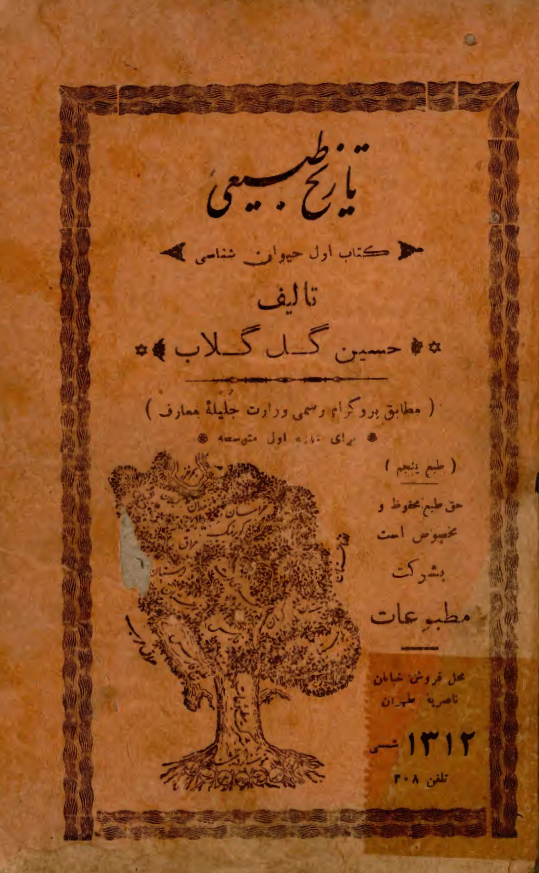 تاریخ طبیعی
کتاب اول حیوان شناسی
تالیف
حسین گل گلاب
( مطابق پروگرام رسمی وزارت جلیلهٔ معارف )
برای اول متوسطه
( طبع پنجم )
حق طبع محفوظ و
مخصوص است
بشرکت
مطبوعات
محل فروش خیابان
ناصریه طهران
۱۳۱۲ شمسی
تلفن ۳۰۸
خراسان
عراق